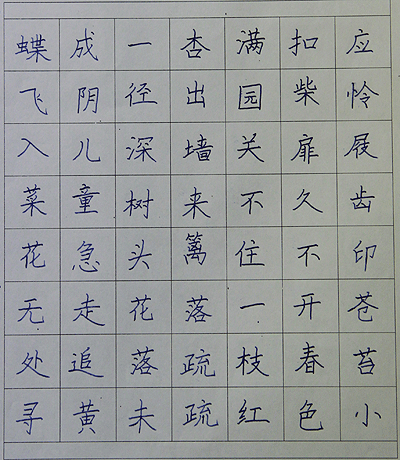 应怜屐齿印苍苔小
扣柴扉久不开春色
满园关不住一枝红
杏出墙来篱落疏疏
一径深树头花落未
成阴儿童急走追黄
蝶飞入菜花无处寻